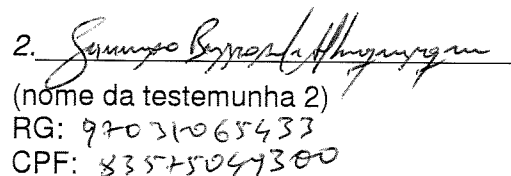 2.
(nome da testemunha 2)
RG: 97031065433
CPF: 83575049300